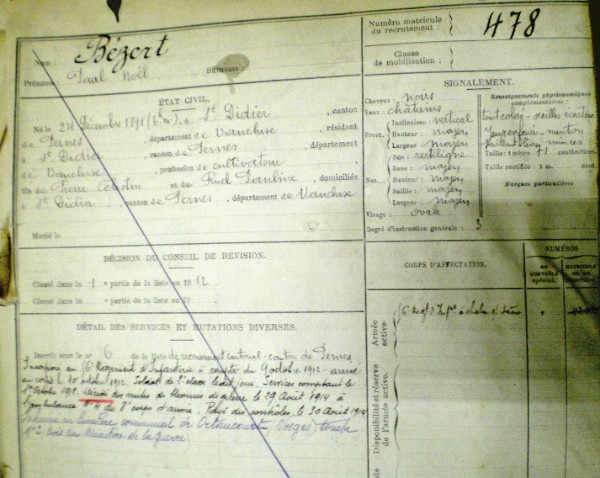 Nom : Bézert
Prénoms : Paul Noël Surnoms :
Numéro matricule du recrutement : 478
Classe de mobilisation :
ÉTAT CIVIL.
Né le 24 Décembre 1891 à St Didier, canton
de Pernes, département de Vaucluse, résidant
à St Didier, canton de Pernes, département
de Vaucluse, profession de cultivateur
fils de Pierre Célestin et de Pauline, domiciliés
à St Didier, canton de Pernes, département de Vaucluse
Marié le
SIGNALEMENT.
Cheveux : noirs
Yeux : châtains
Front. Inclinaison : vertical
Hauteur : moyen
Largeur : moyen
Nez. Dos : rectiligne
Base : moyen
Hauteur : moyen
Saillie : moyen
Largeur : moyen
Visage : ovale
Degré d'instruction générale : 3
Renseignements physionomiques complémentaires :
menton
minces
Taille : 1 mètre 71 centimètres
Taille rectifiée : 1 m.
Marques particulières
DÉCISION DU CONSEIL DE REVISION.
Classé dans la 1e partie de la liste en 1912
Classé dans la e partie de la liste en 19
DÉTAIL DES SERVICES ET MUTATIONS DIVERSES.
Inscrit sous le n° 6 de la liste de recrutement cantonal canton de Pernes
Incorporé au Régiment d'Infanterie à compter du 9 octobre 1912 arrivé
au corps le 10 octobre 1912. Soldat de 2e classe ledit jour. Services comptant du
1er octobre 1912. Décédé des suites de blessures de guerre le 29 Août 1914 à
l'ambulance n° 4 du 8e corps d'armée. Rayé des contrôles le 30 Août 1914
Inhumé au cimetière communal de Ortancourt (Vosges) tombe
n° 2, avis du Ministère de la Guerre
CORPS D'AFFECTATION.
NUMÉROS
AU CONTRÔLE spécial.
MATRICULE
Armée active.
Disponibilité et réserve de l'armée active.